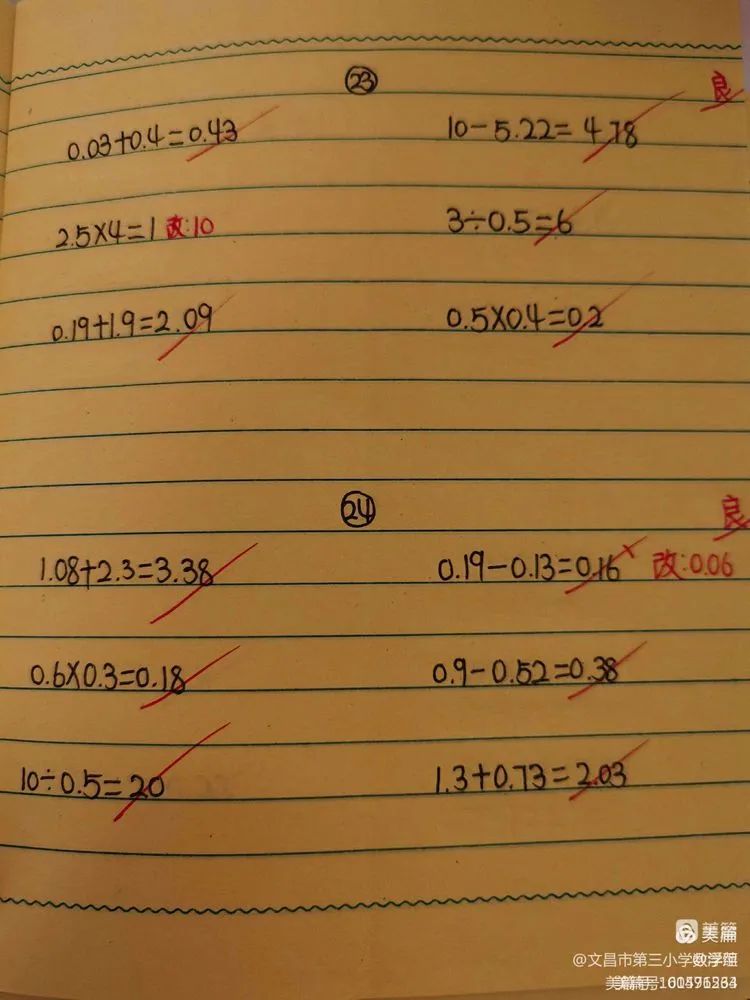 23
良
0.03+0.4=0.43 10-5.22=4.78
2.5×4=1 改:10 3÷0.5=6
0.19+1.9=2.09 0.5×0.4=0.2
24
良
1.08+2.3=3.38 0.19-0.13=0.16 × 改:0.06
0.6×0.3=0.18 0.9-0.52=0.38
10÷0.5=20 1.3+0.73=2.03
美篇
@文昌市第三小学数学组
美篇号: